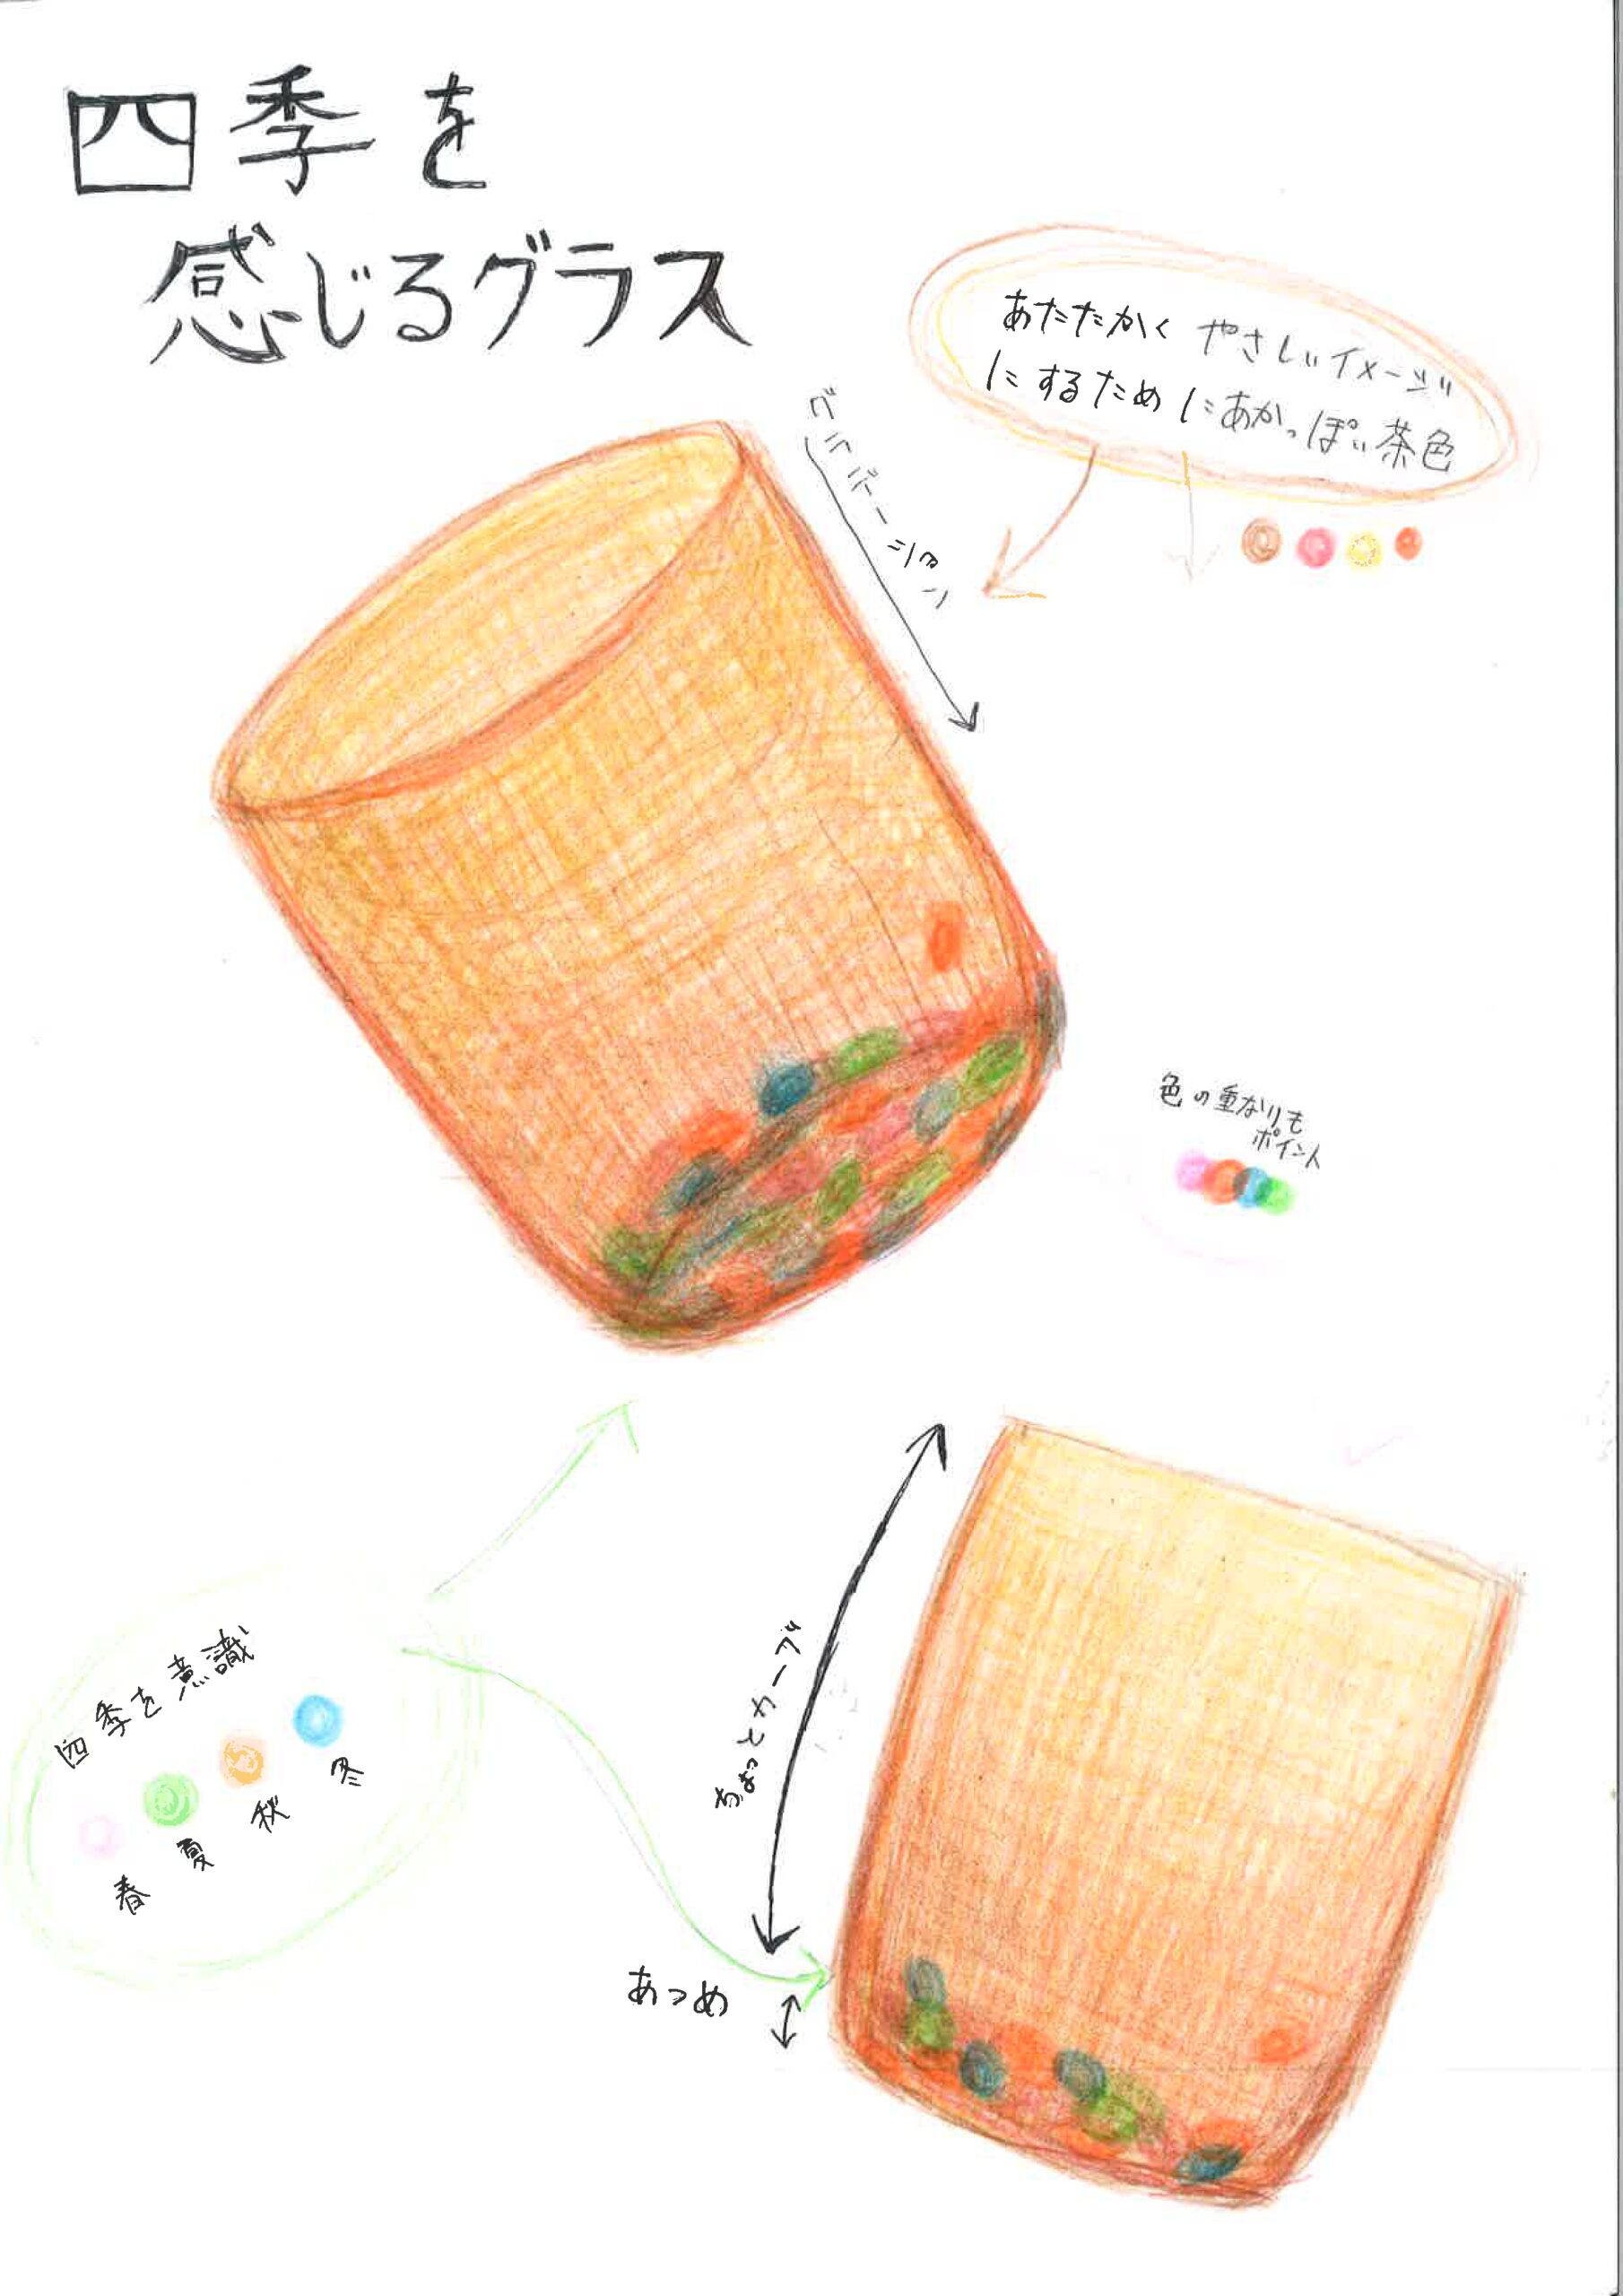 四季を
感じるグラス
あたたかく やさしいイメージ
にするためにあかっぽい茶色
グラデーション
色の重なりも
ポイント
四季を意識
春 夏 秋 冬
ちょっとカーブ
あつめ